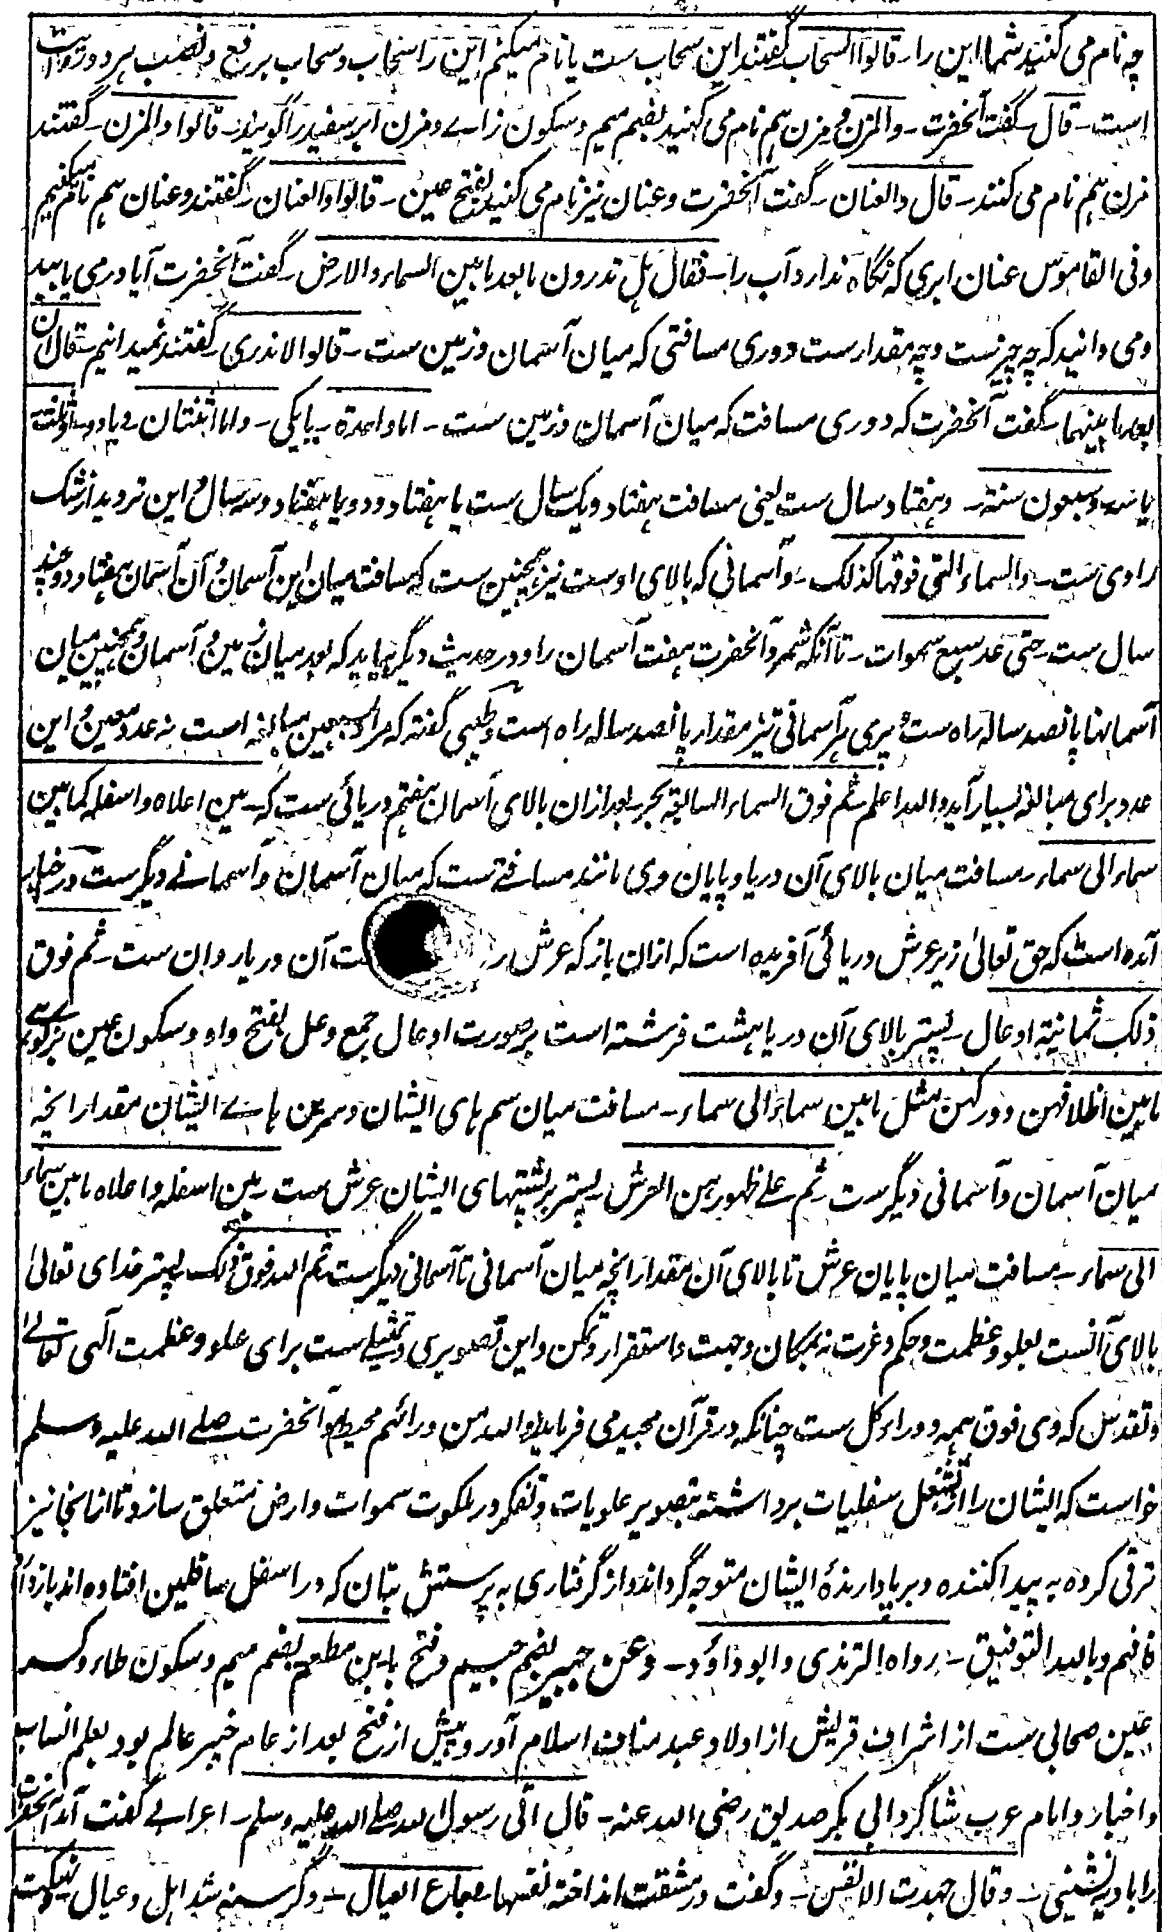 چه نام می کنید شما این را۔ قالوا السحاب۔ گفتند این سحاب ست یا نام میکنیم این را سحاب و سحاب برفع و نصب هر دو روایت
است۔ قال۔ گفت آنحضرت۔ والمزن و مزن هم نام می کنید بضم میم و سکون زاے و مزن ابر سفید را گویند۔ قالوا والمزن۔ گفتند
مزن هم نام می کنند۔ قال والعنان۔ گفت آنحضرت و عنان نیز نام می کنید بفتح عین۔ قالوا والعنان۔ گفتند و عنان هم نام میکنیم
و فی القاموس عنان ابری که نگاه ندارد آب را۔ فقال هل تدرون ما بعد ما بین السماء والارض۔ گفت آنحضرت آیا در می یابید
و می دانید که چه چیزست و چه مقدار ست دوری مسافتی که میان آسمان و زمین ست۔ قالوا لا ندری۔ گفتند نمیدانیم۔ قال ان
بعد ما بینهما۔ گفت آنحضرت که دوری مسافت که میان آسمان و زمین ست۔ اما واحدة۔ یا یکی۔ واما اثنتان۔ و یا دو۔ او ثلث
یا سه وسبعون سنة۔ و هفتاد سال ست یعنی مسافت هفتاد و یک سال ست یا هفتاد و دو یا هفتاد و سه سال و این تردید از شک
راوی ست۔ والسماء التی فوقها کذلک۔ و آسمانی که بالای اوست نیز همچنین ست که مسافت میان این آسمان و آن آسمان هفتاد و چند
سال ست۔ حتی عد سبع سموات۔ تا آنکه شمرد آنحضرت هفت آسمان را و در حدیث دیگر بیاید که بعد میان زمین و آسمان و همچنین میان
آسمانها پانصد ساله راه ست و سبری هر آسمانی نیز مقدار پانصد ساله راه است و طیبی گفته که مراد بسبعین مبالغه است نه عدد معین و این
عدد برای مبالغه بسیار آید والله اعلم ثم فوق السماء السابعة بحر۔ بعد ازان بالای آسمان هفتم دریائی ست که۔ بین اعلاه و اسفله کما بین
سماء الی سماء۔ مسافت میان بالای آن دریا و پایان وی مانند مسافتے ست که میان آسمان و آسمانے دیگر ست و در
آمده است که حق تعالیٰ زیر عرش دریائی آفریده است که ازان باز که عرش ت آن دریا روان ست۔ ثم فوق
ذلک ثمانیة اوعال۔ پستر بالای آن دریا هشت فرشته است بر صورت اوعال جمع وعل بفتح واو و سکون عین بز کوهی
ما بین اظلافهن و ورکهن مثل ما بین سماء الی سماء۔ مسافت میان سم های ایشان و سرین هاے ایشان مقدار انچه
میان آسمان و آسمانی دیگر ست۔ ثم علے ظهورهن العرش۔ پستر بر پشتهای ایشان عرش ست۔ بین اسفله و اعلاه ما بین سماء
الی سماء۔ مسافت میان پایان عرش تا بالای آن مقدار انچه میان آسمانی تا آسمانی دیگر ست ثم الله فوق ذلک۔ پستر خدای تعالیٰ
بالای آنست بعلو و عظمت و حکم و عزت نه بمکان و جهت و استقرار و تمکن و این تصویرے و تمثیلے ست برای علو و عظمت الهی تعالےٰ
و تقدس که وی فوق همه و وراء کل ست چنانکه در قرآن مجید می فرماید والله من ورائهم محیط و آنحضرت صلے الله علیه وسلم
خواست که ایشان را از شغل سفلیات برداشته بتصویر علویات و تفکر در ملکوت سموات و ارض متعلق سازد تا از انجا نیز
ترقی کرده به پیدا کننده و برپا دارندهٔ ایشان متوجه گرداند و از گرفتاری به پرستش بتان که در اسفل سافلین افتاده اند باز دارد
فافهم و بالله التوفیق۔ رواه الترمذی و ابو داؤد۔ و عن جبیر بضم جیم و فتح با بن مطعم بضم میم و سکون طاء و کسر
عین صحابی ست از اشراف قریش از اولاد عبد مناف اسلام آورد پیش از فتح بعد از عام خیبر عالم بود بعلم انساب
و اخبار و ایام عرب شاگرد ابی بکر صدیق رضی الله عنه۔ قال اتی رسول الله صلے الله علیه وسلم اعرابے۔ گفت آمد آنحضرت
را بادیه نشینی۔ و قال جهدت الانفس۔ و گفت در مشقت انداخته نفسها۔ و جاع العیال۔ و گرسنه شد اهل و عیال۔